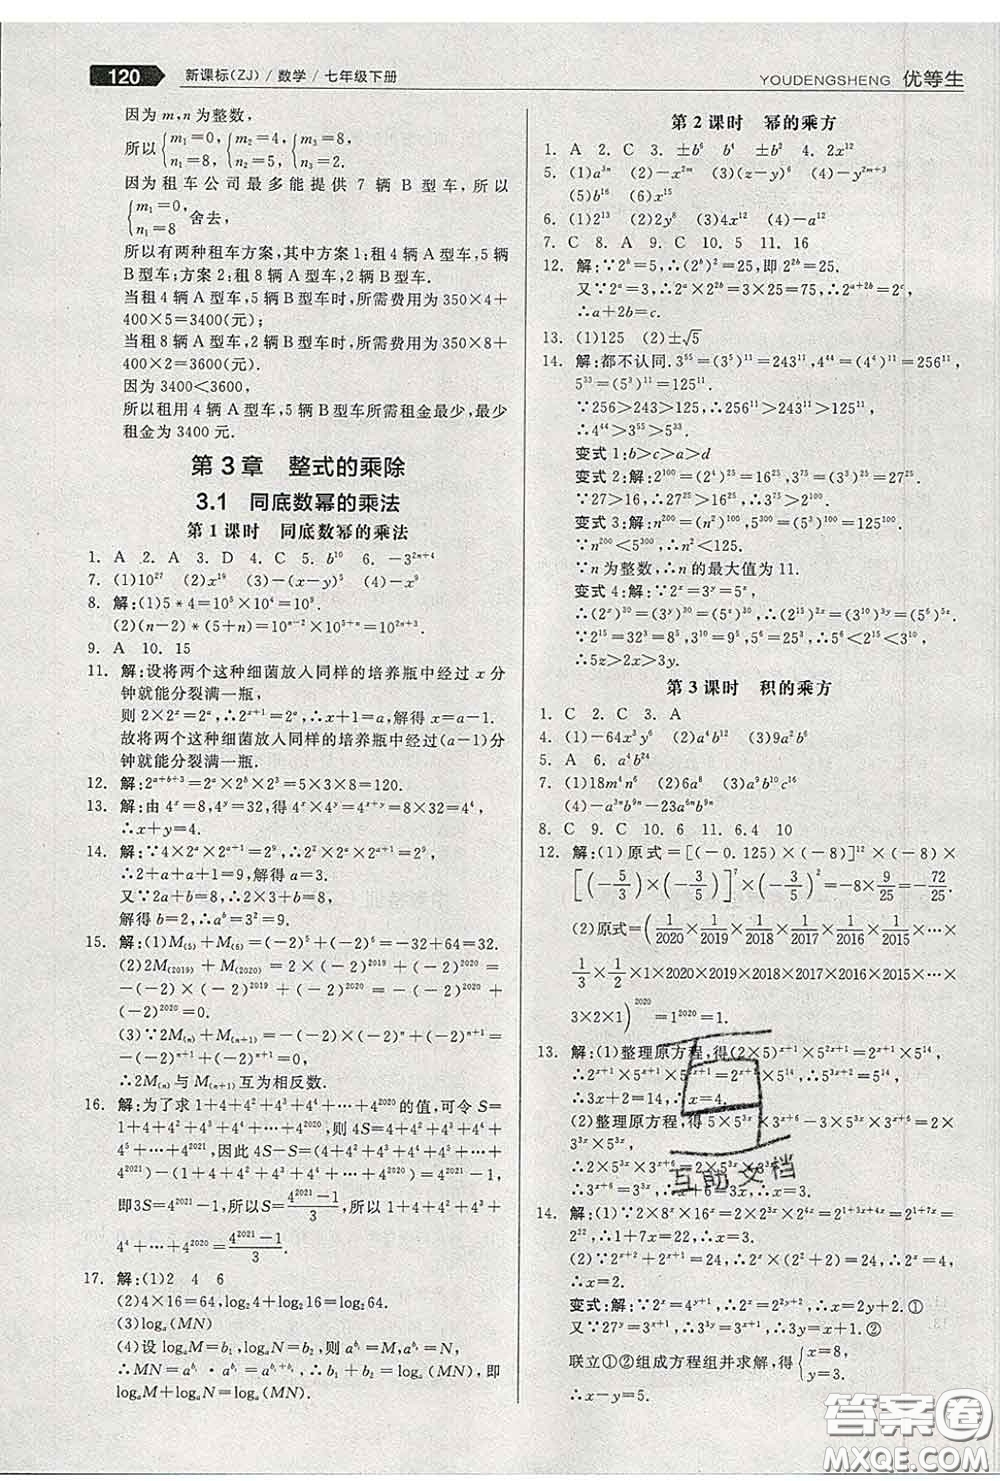 120 新课标(ZJ)/数学/七年级下册
YOUDENGSHENG 优等生
因为 m,n 为整数,
所以 {m₁=0, n₁=8, {m₂=4, n₂=5, {m₃=8, n₃=2.
因为租车公司最多能提供 7 辆 B 型车,所以
{m₁=0, n₁=8 舍去,
所以有两种租车方案,其中方案 1:租 4 辆 A 型车,5 辆
B 型车;方案 2:租 8 辆 A 型车,2 辆 B 型车.
当租 4 辆 A 型车,5 辆 B 型车时,所需费用为 350×4+
400×5=3400(元);
当租 8 辆 A 型车,2 辆 B 型车时,所需费用为 350×8+
400×2=3600(元).
因为 3400<3600,
所以租用 4 辆 A 型车,5 辆 B 型车所需租金最少,最少
租金为 3400 元.
第 3 章 整式的乘除
3.1 同底数幂的乘法
第 1 课时 同底数幂的乘法
1. A 2. A 3. D 4. C 5. b¹⁰ 6. −3²ⁿ⁺⁴
7. (1)10²⁷ (2)x¹⁹ (3)−(x−y)⁵ (4)−x⁹
8. 解:(1)5*4=10⁵×10⁴=10⁹.
(2)(n−2)*(5+n)=10ⁿ⁻²×10⁵⁺ⁿ=10²ⁿ⁺³.
9. A 10. 15
11. 解:设将两个这种细菌放入同样的培养瓶中经过 x 分
钟就能分裂满一瓶,
则 2×2ˣ=2ᵃ,∴2ˣ⁺¹=2ᵃ,∴x+1=a,解得 x=a−1.
故将两个这种细菌放入同样的培养瓶中经过(a−1)分
钟就能分裂满一瓶.
12. 解:2ᵃ⁺ᵇ⁺³=2ᵃ×2ᵇ×2³=5×3×8=120.
13. 解:由 4ˣ=8,4ʸ=32,得 4ˣ×4ʸ=4ˣ⁺ʸ=8×32=4⁴,
∴x+y=4.
14. 解:∵4×2ᵃ×2ᵃ⁺¹=2⁹,∴2²×2ᵃ×2ᵃ⁺¹=2⁹,
∴2+a+a+1=9,解得 a=3.
又∵2a+b=8,∴2×3+b=8,
解得 b=2,∴aᵇ=3²=9.
15. 解:(1)M₍₅₎+M₍₆₎=(−2)⁵+(−2)⁶=−32+64=32.
(2)2M₍₂₀₁₉₎+M₍₂₀₂₀₎=2×(−2)²⁰¹⁹+(−2)²⁰²⁰=
−(−2)×(−2)²⁰¹⁹+(−2)²⁰²⁰=−(−2)²⁰²⁰+
(−2)²⁰²⁰=0.
(3)∵2M₍ₙ₎+M₍ₙ₊₁₎=−(−2)×(−2)ⁿ+(−2)ⁿ⁺¹=
−(−2)ⁿ⁺¹+(−2)ⁿ⁺¹=0,
∴2M₍ₙ₎与 M₍ₙ₊₁₎互为相反数.
16. 解:为了求 1+4+4²+4³+4⁴+…+4²⁰²⁰的值,可令 S=
1+4+4²+4³+4⁴+…+4²⁰²⁰,则 4S=4+4²+4³+4⁴+
…+4²⁰²¹,因此 4S−S=(4+4²+4³+4⁴+…+
4²⁰²¹)−(1+4+4²+4³+4⁴+…+4²⁰²⁰)=4²⁰²¹−1,
即 3S=4²⁰²¹−1,所以 S=(4²⁰²¹−1)/3,所以 1+4+4²+4³+
4⁴+…+4²⁰²⁰=(4²⁰²¹−1)/3.
17. 解:(1)2 4 6
(2)4×16=64,log₂4+log₂16=log₂64
(3)logₐ(MN)
(4)设 logₐM=b₁,logₐN=b₂,则 a^b₁=M,a^b₂=N,
∴MN=a^b₁·a^b₂=a^(b₁+b₂),∴b₁+b₂=logₐ(MN),即
logₐM+logₐN=logₐ(MN).
第 2 课时 幂的乘方
1. A 2. C 3. ±b⁶ b⁴ ±b² 4. 2x¹²
5. (1)a³ᵐ (2)−x⁶ (3)(z−y)⁶ (4)−y²ᵐ⁺³
(5)b¹⁶ (6)x⁵
6. (1)2¹³ (2)2y⁸ (3)2x¹² (4)0
7. C 8. A 9. C 10. 5 11. 16
12. 解:∵2ᵇ=5,∴(2ᵇ)²=25,即 2²ᵇ=25.
又∵2ᵃ×2²ᵇ=2ᶜ,∴2ᵃ⁺²ᵇ=2ᶜ,
∴a+2b=c.
13. (1)125 (2)±√5
14. 解:都不认同.3⁵⁵=(3⁵)¹¹=243¹¹,4⁴⁴=(4⁴)¹¹=256¹¹,
5³³=(5³)¹¹=125¹¹.
∵256>243>125,∴256¹¹>243¹¹>125¹¹,
∴4⁴⁴>3⁵⁵>5³³.
变式 1:b>c>a>d
变式 2:解:2¹⁰⁰=(2⁴)²⁵=16²⁵,3⁷⁵=(3³)²⁵=27²⁵.
∵27>16,∴27²⁵>16²⁵,∴3⁷⁵>2¹⁰⁰.
变式 3:解:n²⁰⁰=(n²)¹⁰⁰,5³⁰⁰=(5³)¹⁰⁰=125¹⁰⁰.
∵n²⁰⁰<5³⁰⁰,∴n²<125.
∵n 为整数,∴n 的最大值为 11.
变式 4:解:∵2ˣ=3ʸ=5ᶻ,
∴(2ˣ)³⁰=(3ʸ)³⁰=(5ᶻ)³⁰,∴(2¹⁵)²ˣ=(3¹⁰)³ʸ=(5⁶)⁵ᶻ.
∵2¹⁵=32³=8⁵,3¹⁰=9⁵,5⁶=25³,∴5⁶<2¹⁵<3¹⁰,
∴5z>2x>3y.
第 3 课时 积的乘方
1. C 2. C 3. A
4. (1)−64x³y⁶ (2)a⁴b¹² (3)9a²b¹⁰
5. A 6. a⁴b²⁴
7. (1)18m⁴n⁶ (2)6a⁸ (3)a⁹b¹⁰c¹⁶
(4)−a³ⁿb⁹ⁿ−23a⁶ⁿb⁹ⁿ
8. C 9. C 10. 6 11. 6.4 10
12. 解:(1)原式=[(−0.125)×(−8)]¹²×(−8)×
[(−5/3)×(−3/5)]⁷×(−3/5)²=−8×9/25=−72/25.
(2)原式=(1/2020×1/2019×1/2018×1/2017×1/2016×1/2015×…×
1/3×1/2×1×2020×2019×2018×2017×2016×2015×…×
3×2×1)²⁰²⁰=1²⁰²⁰=1.
13. 解:(1)整理原方程,得(2×5)ˣ⁺¹×5²ˣ⁺¹=2ˣ⁺¹×5¹⁴,
∴2ˣ⁺¹×5ˣ⁺¹×5²ˣ⁺¹=2ˣ⁺¹×5³ˣ⁺²=2ˣ⁺¹×5¹⁴,
∴3x+2=14,∴x=4.
(2)整理原方程,得 5×5³ˣ×3ˣ⁺⁶−3×5³ˣ×3ˣ⁺⁶=2×
3³ˣ×5³ˣ,
∴2×5³ˣ×3ˣ⁺⁶=2×5³ˣ×3³ˣ,
∴3ˣ⁺⁶=3³ˣ,∴x+6=3x,∴x=3.
14. 解:(1)∵2×8ˣ×16ˣ=2×2³ˣ×2⁴ˣ=2¹⁺³ˣ⁺⁴ˣ=2¹⁺⁷ˣ=
2²²,∴1+7x=22,∴x=3.
(2)∵2ˣ⁺²+2ˣ⁺¹=24,∴2ˣ(2²+2)=24,∴2ˣ=4,
∴x=2.
变式:解:∵2ˣ=4ʸ⁺¹,∴2ˣ=2²ʸ⁺²,∴x=2y+2.①
又∵27ʸ=3ˣ⁺¹,∴3³ʸ=3ˣ⁺¹,∴3y=x+1.②
联立①②组成方程组并求解,得 {x=8, y=3,
∴x−y=5.
互助文档
答案圈
MXQE.COM